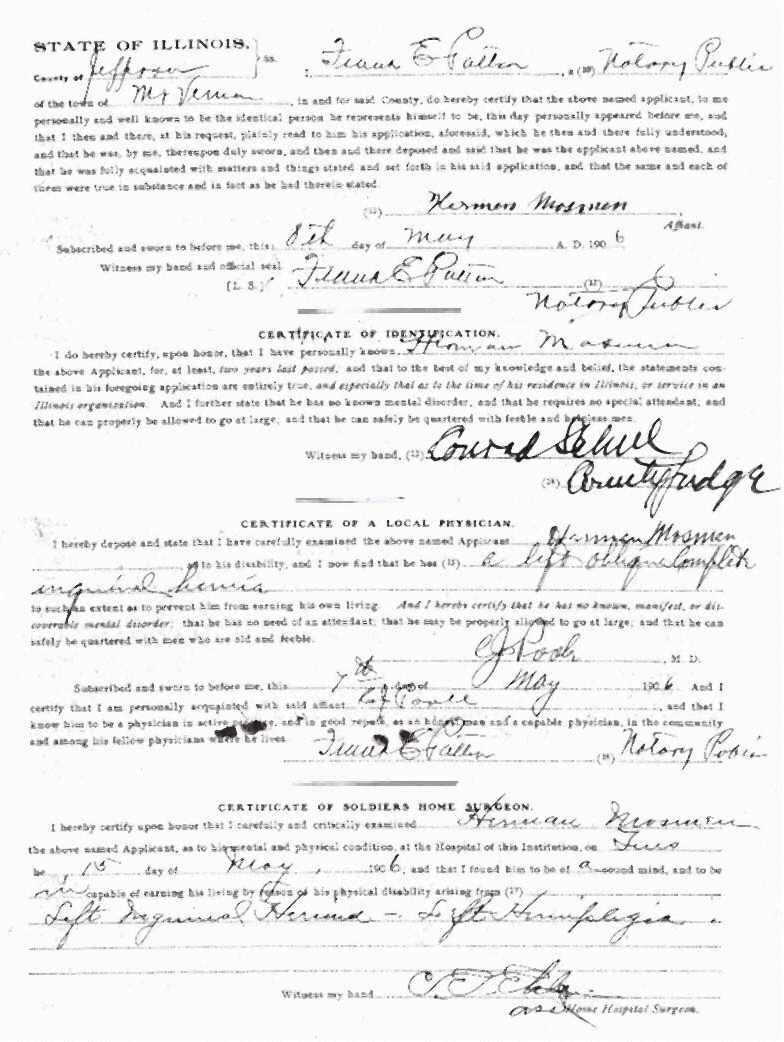 STATE OF ILLINOIS, } ss.
County of Jefferson
I, Frank E Patton, a (10) Notary Public
of the town of Mt Vernon, in and for said County, do hereby certify that the above named applicant, to me
personally and well known to be the identical person he represents himself to be, this day personally appeared before me, and
that I then and there, at his request, plainly read to him his application, aforesaid, which he then and there fully understood,
and that he was, by me, thereupon duly sworn, and then and there deposed and said that he was the applicant above named, and
that he was fully acquainted with matters and things stated and set forth in his said application, and that the same and each of
them were true in substance and in fact as he had therein stated.
Herman Mosmen
Affiant.
Subscribed and sworn to before me, this 8th day of May A. D. 190 6
Witness my hand and official seal
[L. S.] Frank E. Patton
Notary Public
CERTIFICATE OF IDENTIFICATION.
I do hereby certify, upon honor, that I have personally known Herman Mosmen
the above Applicant, for, at least, two years last passed, and that to the best of my knowledge and belief, the statements con-
tained in his foregoing application are entirely true, and especially that as to the time of his residence in Illinois, or service in an
Illinois organization. And I further state that he has no known mental disorder, and that he requires no special attendant; and
that he can properly be allowed to go at large; and that he can safely be quartered with feeble and helpless men.
Witness my hand, (13) Conrad Schul
County Judge
CERTIFICATE OF A LOCAL PHYSICIAN.
I hereby depose and state that I have carefully examined the above named Applicant Herman Mosmen
as to his disability, and I now find that he has (15) a left oblique Complete
inguinal hernia
to such an extent as to prevent him from earning his own living. And I hereby certify that he has no known, manifest, or dis-
coverable mental disorder; that he has no need of an attendant; that he may be properly allowed to go at large; and that he can
safely be quartered with men who are old and feeble.
CJ Poole, M. D.
Subscribed and sworn to before me, this 7th day of May 1906 And I
certify that I am personally acquainted with said affiant CJ Poole, and that I
know him to be a physician in active practice, and in good repute, as an honest man and a capable physician, in the community
and among his fellow physicians where he lives.
Frank E Patton (16) Notary Public
CERTIFICATE OF SOLDIERS HOME SURGEON.
I hereby certify upon honor that I carefully and critically examined Herman Mosmen
the above named Applicant, as to his mental and physical condition, at the Hospital of this Institution, on Tues
he, 15 day of May, 1906, and that I found him to be of a sound mind, and to be
in capable of earning his living by reason of his physical disability arising from (17)
Left Inguinal Hernia - Left Hemiplegia.
Witness my hand
Home Hospital Surgeon.